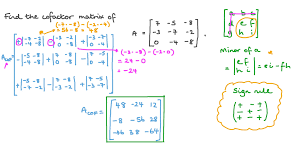 Find the cofactor matrix of
A = [7 -5 -8
-3 -7 -2
0 -4 -8] .
(-7·-8) - (-4·-2)
= 56 - 8 = 48
A_COF = [+|-7 -2; -4 -8| -|-3 -2; 0 -8| +|-3 -7; 0 -4|
-|-5 -8; -4 -8| +|7 -8; 0 -8| -|7 -5; 0 -4|
+|-5 -8; -7 -2| -|7 -8; -3 -2| +|7 -5; -3 -7|]
(-3·-8) - (-2·0)
= 24 - 0
= -24
A_COF = [48 -24 12
-8 -56 28
-46 38 -64]
[a b c
d e f
g h i]
minor of a
= |e f; h i| = ei - fh
Sign rule
(+ - +
- + -
+ - +)